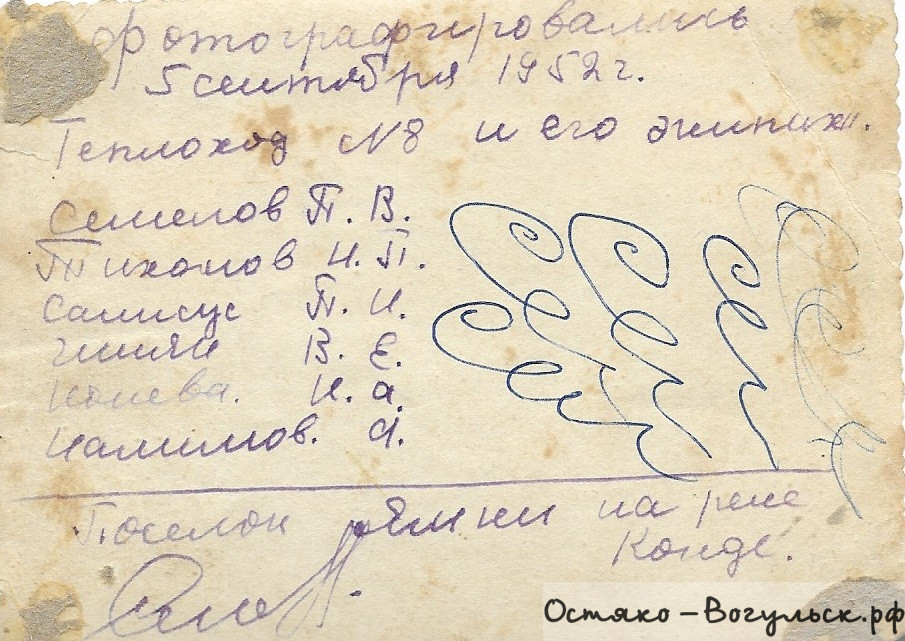 Фотографировались
5 сентября 1952 г.
Теплоход №8 и его экипаж.
Семенов П. В.
Тихонов Н. П.
П. И.
В. Е.
Конева. Н. А.
Налимов. Я.
Поселок на реке
Конде.
Остяко-Вогульск.рф